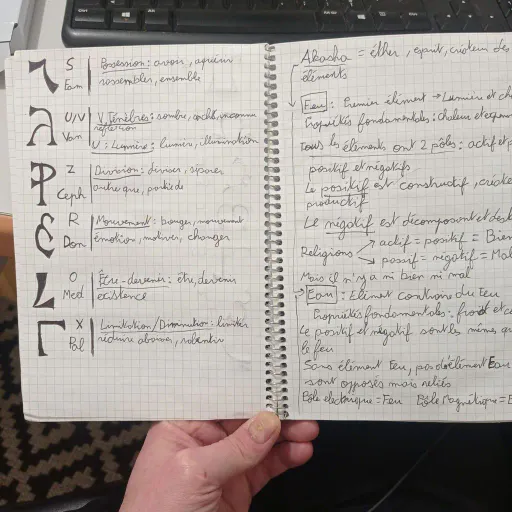 S Possession : avoir, acquérir
Eam rassembler, ensemble
U/V V Ténèbres : sombre, caché, inconnu
Van réflexion
U : Lumière : lumière, illumination
Z Division : diviser, séparer
Ceph autre que, partie de
R Mouvement : bouger, mouvement
Don émotion, motiver, changer
O Être-devenir : être, devenir
Med existence
X Limitation/Diminution : limiter
Pal réduire abaisser, ralentir
Akasha = éther, esprit, créateur des
éléments
Feu : Premier élément → Lumière et ch
Propriétés fondamentales : chaleur et expans
Tous les éléments ont 2 pôles : actif et p
positif et négatifs
Le positif est constructif, créate
productif
Le négatif est décomposant et des
Religions actif = positif = Bien
passif = négatif = Mal
Mais il n'y a ni bien ni mal
Eau : Élément contraire du feu
Propriétés fondamentales : froid et co
Le positif et négatif sont les mêmes qu
le feu
Sans élément Feu, pas d'élément Eau
sont opposés mais reliés
Pôle électrique = Feu Pôle Magnétique = E